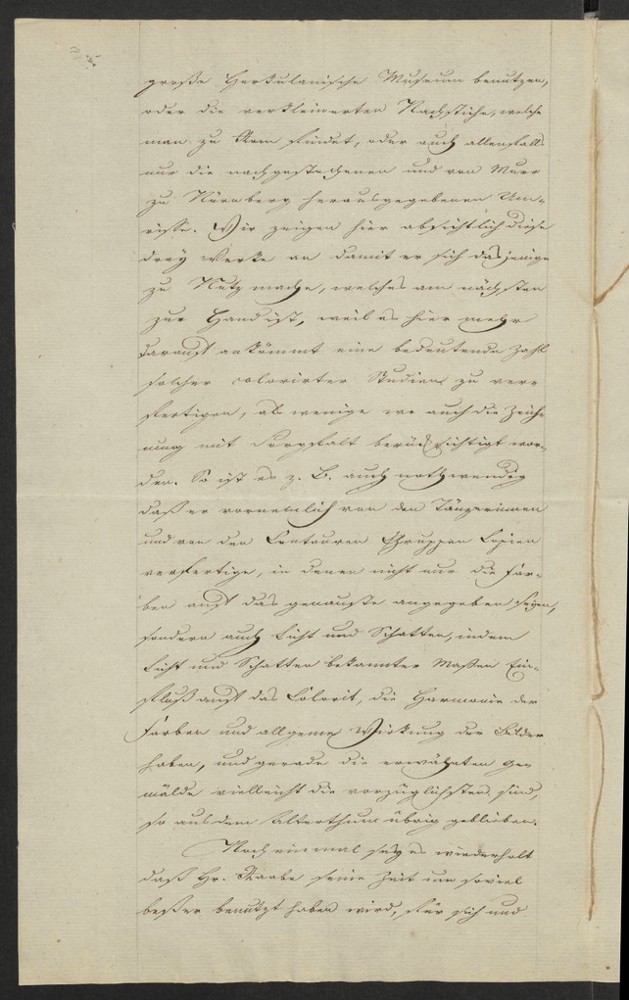 große Herkulanische Museum benutzen,
oder die verkleinerten Nachstiche, welche
man zu Rom findet, oder auch allenfalls
nur die nachgestochenen und von Murr
zu Nürnberg herausgegebenen Um-
risse. Wir zeigen hier absichtlich diese
drey Werke an damit er sich dasjenige
zu Nutz mache, welches am nächsten
zur Hand ist, weil es hier mehr
darauf ankömmt eine bedeutende Zahl
solcher colorirter Studien zu ver-
fertigen, als wenige wo auch die Zeich-
nung mit Sorgfalt berücksichtigt wor-
den. So ist es z. B. auch nothwendig
daß er vornemlich von den Tänzerinnen
und von den Centauren Gruppen Copien
verfertige, in denen nicht nur die Far-
ben aufs das genauste angegeben seyen,
sondern auch Licht und Schatten, indem
Licht und Schatten bekannter Maßen Ein-
fluß auf das Colorit, die Harmonie der
Farben und allgemeine Wirkung der Bilder
haben, und gerade die erwähnten Ge-
mälde vielleicht die vorzüglichsten sind,
so aus dem Alterthum übrig geblieben.
Noch einmal sey es wiederholt
daß Hr. Raabe seine Zeit um soviel
beßer benutzt haben wird, für sich und